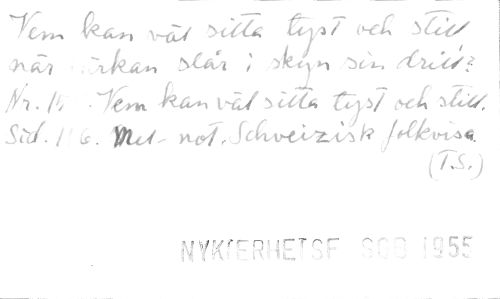 Vem kan väl sitta tyst och still
när lärkan slår i skyn sin drill?
Nr. Vem kan väl sitta tyst och still.
Sid. Mel- not. Schweizisk folkvisa.
(T.S.)
NYKTERHETSF SGB 1955